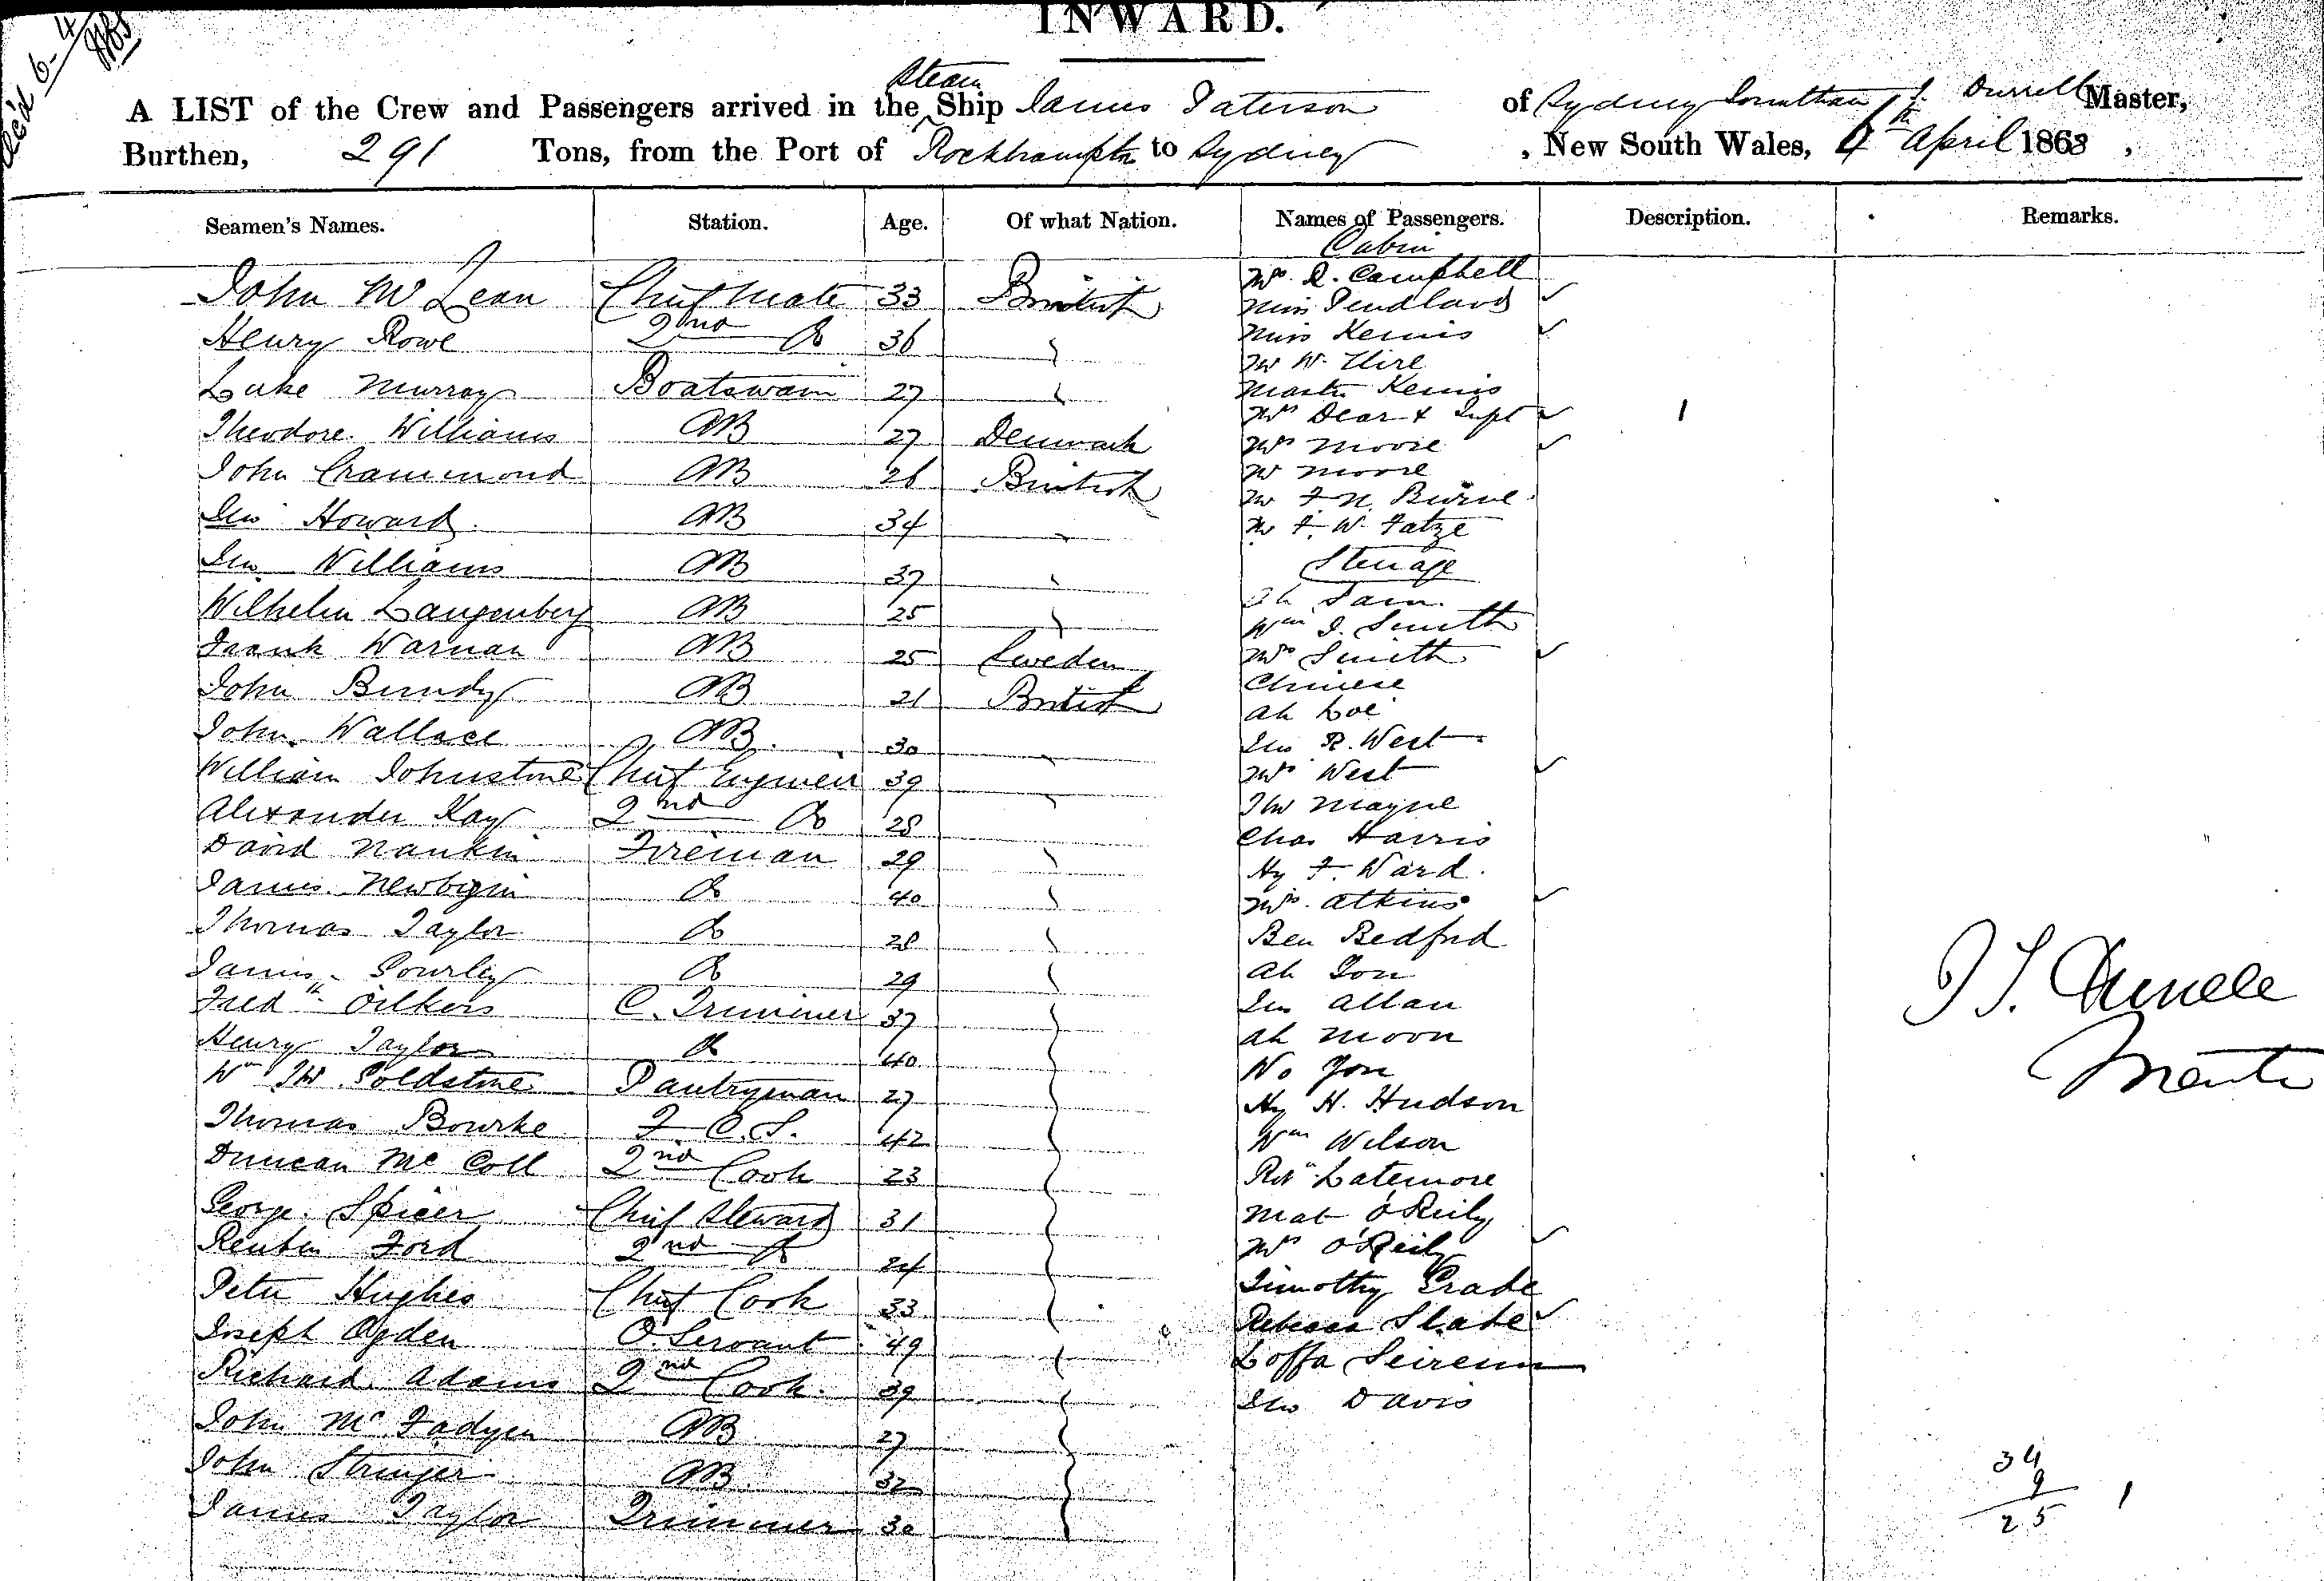 Rec'd 6-4
INWARD.
A LIST of the Crew and Passengers arrived in the Steam Ship James Paterson of Sydney Jonathan S. Durrell Master,
Burthen, 291 Tons, from the Port of Rockhampton to Sydney, New South Wales, 6th April 1868,
Seamen's Names. Station. Age. Of what Nation. Names of Passengers. Description. Remarks.
Cabin
Mr. D. Campbell
John McLean Chief Mate 33 British Miss
Miss Kemis
Henry Rowe 2nd Do 36
Mr W. Hire
Luke Murray Boatswain 27 Master Kemis
Mrs Dear & Inft 1
Theodore Williams AB 27 Denmark Mrs Moore
John Crammond AB 26 British Mr Moore
Mr F. N. Burne
Jno Howard AB 34 Mr F. W. Fatze
Steerage
Jno Williams AB 37
Ah Sam
Wilhelm Langenberg AB 25 Wm J. Smith
Frank Warnan AB 25 Sweden Mrs Smith
Chinese
John Bundy AB 21 British Ah Loe
John Wallace AB 30 Jno R. West
William Johnstone Chief Engineer 39 Mrs West
Alexander Kay 2nd Do 28 Thos Mayne
Chas Harris
David Nankin Fireman 29 Hy F. Ward
James Newbigin Do 40 Mrs Atkins
Thomas Taylor Do 28 Ben Bedford
James Gourley Do 29 Ah Gon
Fredk Oilkers C. Trimmer 37 Jno Allan
Henry Taylor Do 40 Ah Moon
Wm Goldstone Pantryman 27 No Yon
Hy H. Hudson
Thomas Bourke F. C. S. 42 Wm Wilson
Duncan McColl 2nd Cook 23 Latemore
George Spicer Chief Steward 31 Mat O'Reily
Reuben Ford 2nd Do 24 Mrs O'Reily
Timothy Grade
Peter Hughes Chief Cook 33 Rebecca Slate
Joseph Ogden O. Servant 49 Loffa
Richard Adams 2nd Cook 39 Jno Davis
John McFadyen AB 27
John Stringer AB 32
James Taylor Trimmer 30
J S. Durrell
Master
34
9
25 1